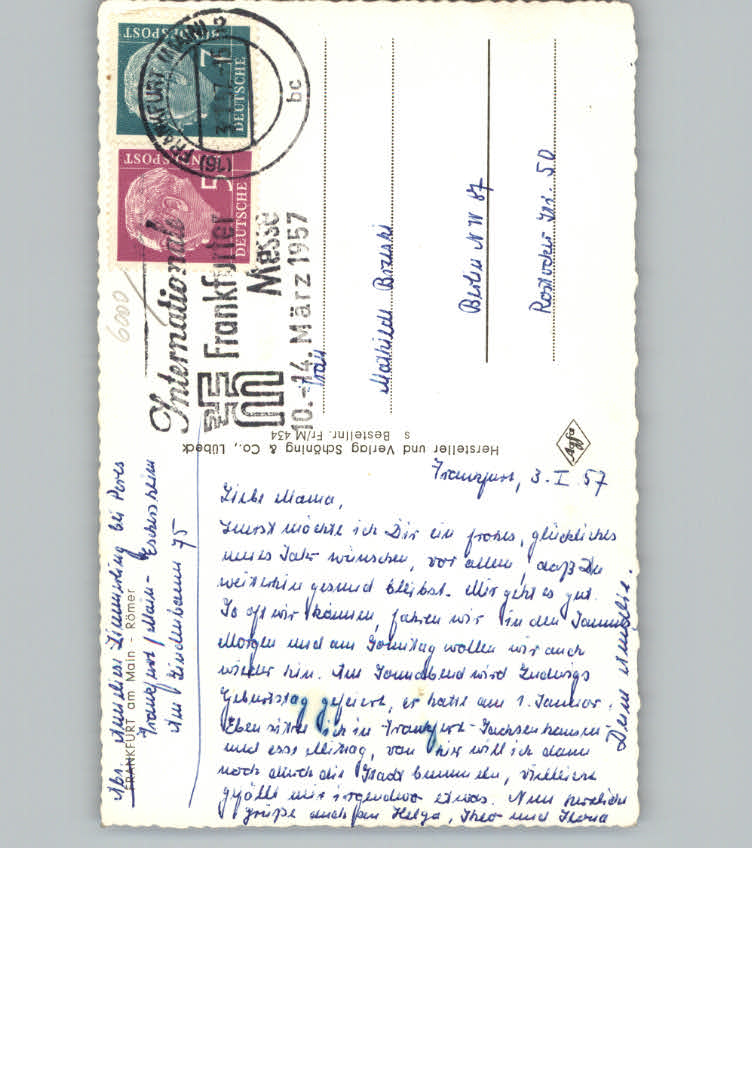 Frankfurt, 3. I. 57
Liebe Mama,
Zuerst möchte ich Dir ein frohes, glückliches
neues Jahr wünschen, vor allem, daß Du
weiterhin gesund bleibst. Mir geht es gut.
So oft wir können, fahren wir in den Taunus
Morgen und am Sonntag wollen wir auch
wieder hin. Am Sonnabend wird Ludwigs
Geburtstag gefeiert, er hatte am 1. Januar.
Eben sitze ich in Frankfurt-Sachsenhausen
und esse Mittag, von hier will ich dann
noch durch die Stadt bummeln, vielleicht
gefällt mir irgendwo etwas. Nun herzliche
Grüße auch an Helga, Theo und Ilona
Deine Anneliese.
Abs. Anneliese Zimmerling bei
Frankfurt/Main-Eschersheim
Am Lindenbaum 75
FRANKFURT am Main - Römer
Hersteller und Verlag Schöning & Co., Lübeck
s Bestellnr. Fr/M 434
Agfa
Frau
Mathilde
Berlin NW 87
Rostocker Str. 50
DEUTSCHE
BUNDESPOST
7
DEUTSCHE
BUNDESPOST
5
(16) FRANKFURT (MAIN) 2
bc
Internationale
Frankfurter
Messe
10.-14. März 1957
6000